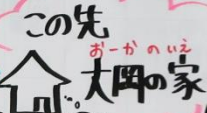 この先
おーかのいえ
大岡の家